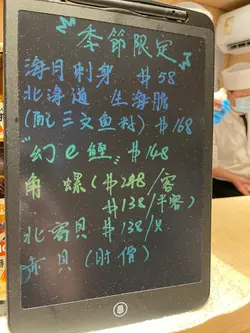 "季節限定"
海月刺身 $58
北海道 生海膽
(配三文魚籽) $168
"幻の蟶" $148
角螺($248/客
$138/半客)
北寄貝 $138/只
赤貝(時價)